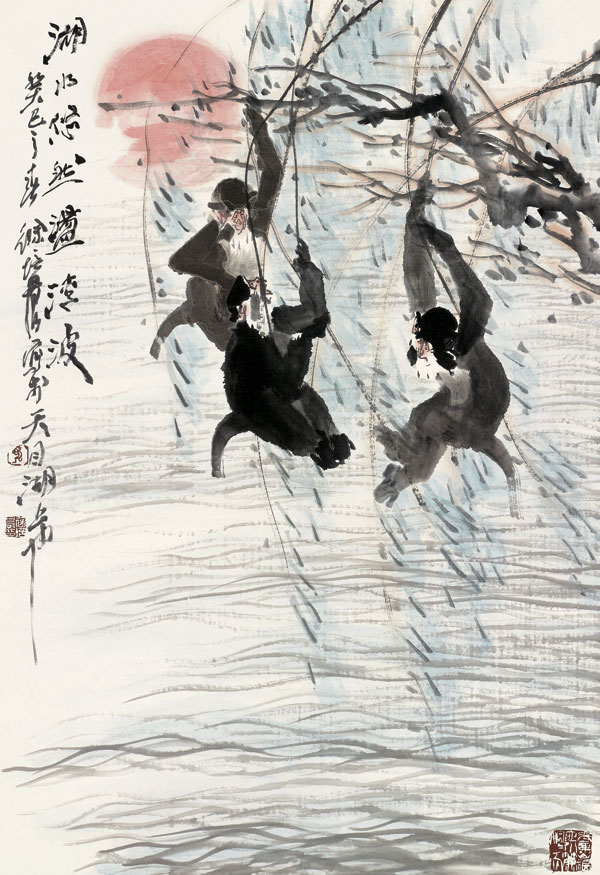 湖水悠然盪清波
癸巳之春徐培晨写於天目湖畔